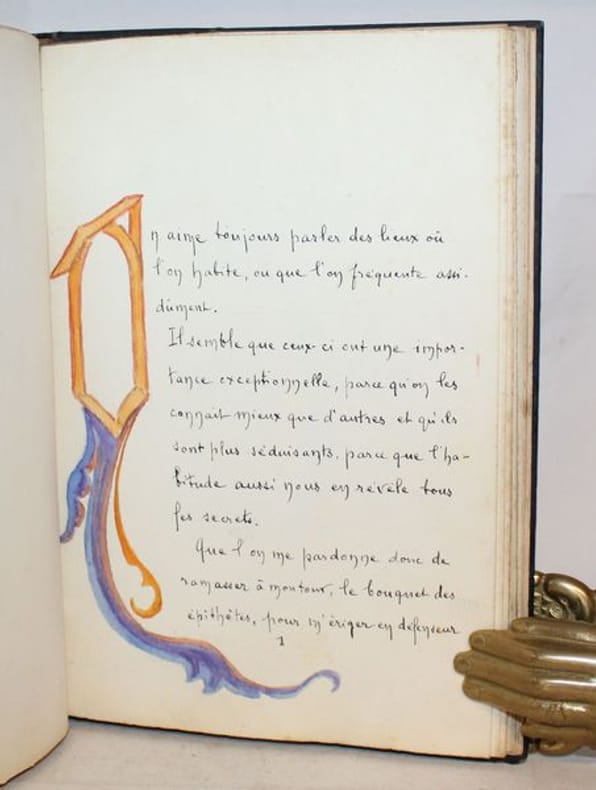 On aime toujours parler des lieux où
l'on habite, ou que l'on fréquente assi-
dûment.
Il semble que ceux-ci ont une impor-
tance exceptionnelle, parce qu'on les
connait mieux que d'autres et qu'ils
sont plus séduisants, parce que l'ha-
bitude aussi nous en révèle tous
les secrets.
Que l'on me pardonne donc de
ramasser à mon tour, le bouquet des
épithètes, pour m'ériger en défenseur
1